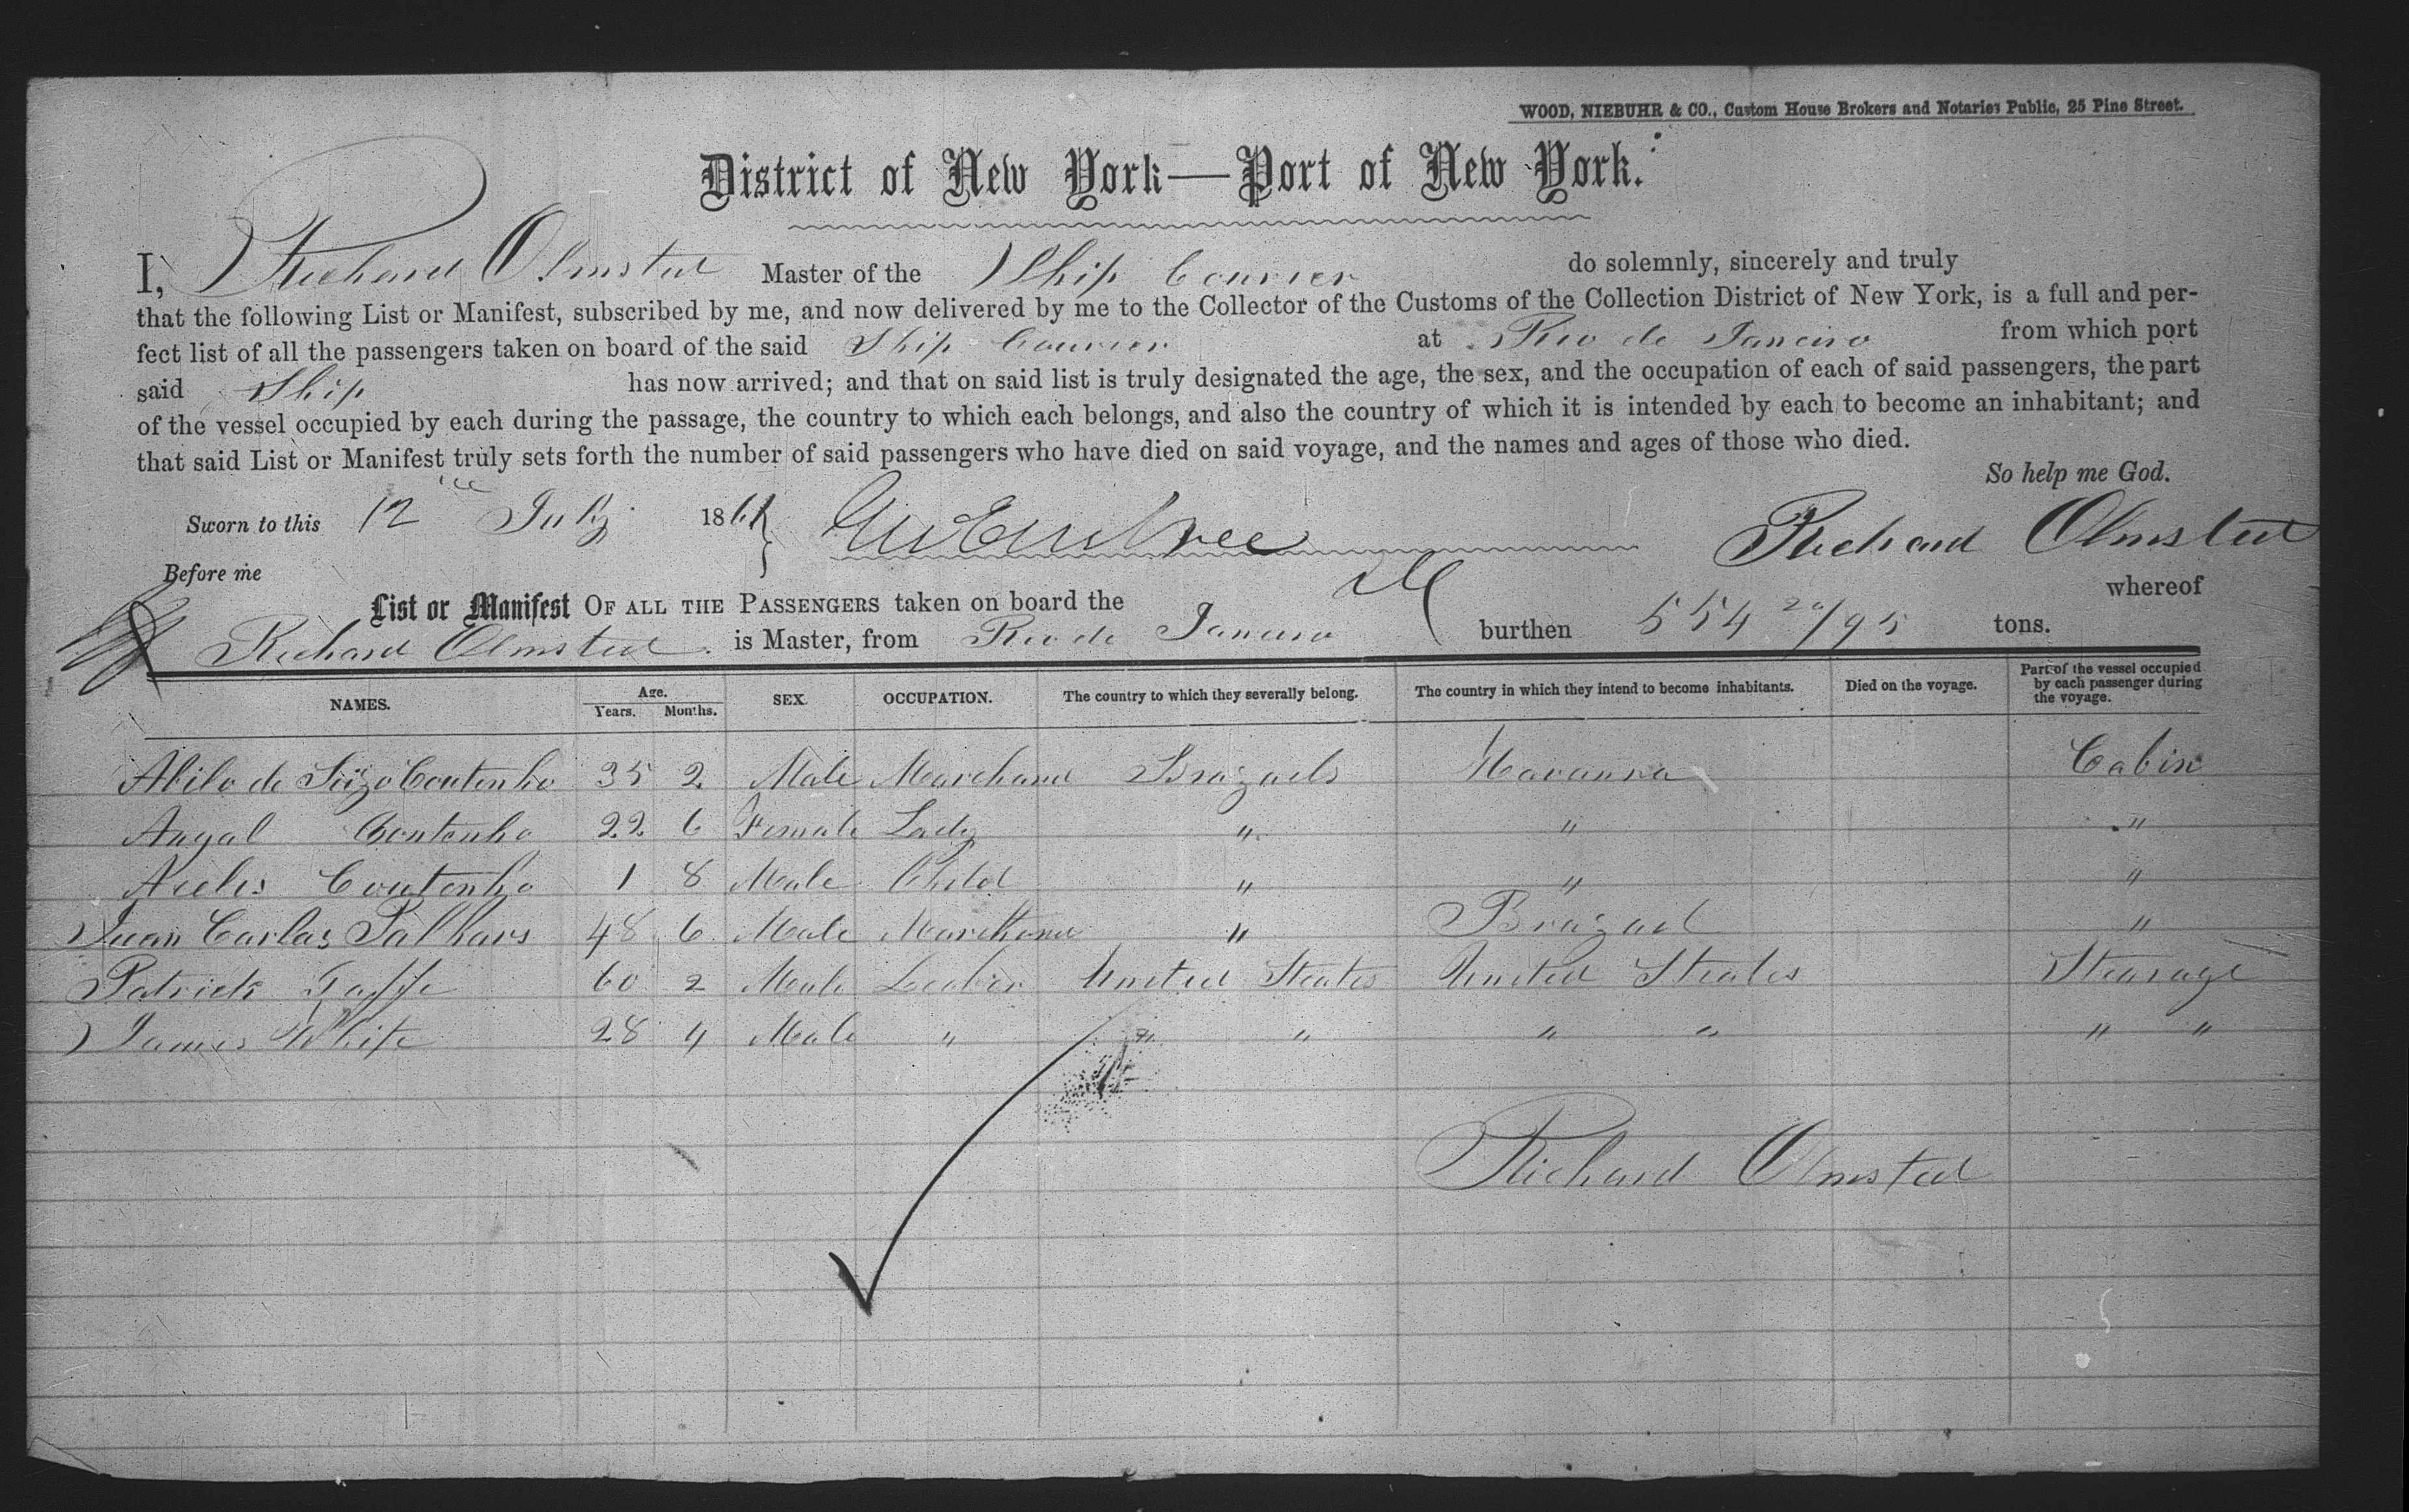 WOOD, NIEBUHR & CO., Custom House Brokers and Notaries Public, 25 Pine Street.
District of New York—Port of New York.
I, Richard Olmsted Master of the Ship Courier do solemnly, sincerely and truly
that the following List or Manifest, subscribed by me, and now delivered by me to the Collector of the Customs of the Collection District of New York, is a full and per-
fect list of all the passengers taken on board of the said Ship Courier at Rio de Janeiro from which port
said Ship has now arrived; and that on said list is truly designated the age, the sex, and the occupation of each of said passengers, the part
of the vessel occupied by each during the passage, the country to which each belongs, and also the country of which it is intended by each to become an inhabitant; and
that said List or Manifest truly sets forth the number of said passengers who have died on said voyage, and the names and ages of those who died.
So help me God.
Sworn to this 12 July 1861 Richard Olmsted
Before me
List or Manifest OF ALL THE PASSENGERS taken on board the whereof
Richard Olmsted is Master, from Rio de Janeiro burthen 554 20/95 tons.
NAMES. Age. Years. Months. SEX. OCCUPATION. The country to which they severally belong. The country in which they intend to become inhabitants. Died on the voyage. Part of the vessel occupied by each passenger during the voyage.
Abilo de Coutenho 35 2 Male Marchand Brazaels Havanna Cabin
Angal Coutenho 22 6 Female Lady " " "
Coutenho 1 8 Male Child " " "
Juan Carlas 48 6 Male Marchand " Brazael "
Patrick Gaffe 60 2 Male Leabor United Steates United Steates Stearage
James White 28 4 Male " " " " " " "
Richard Olmsted